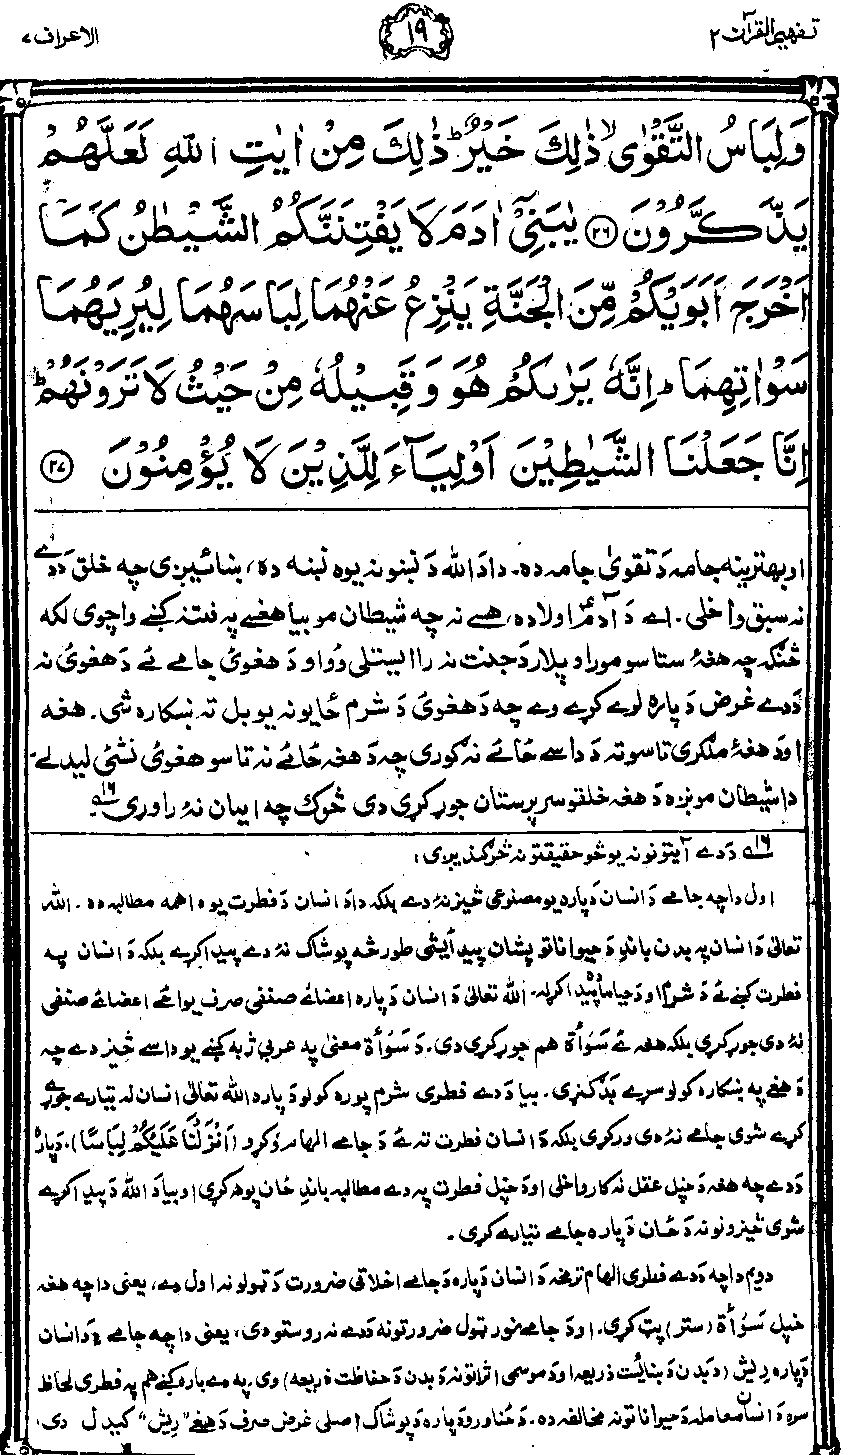 تفهیم القرآن ۲
۱۹
الاعراف ۷
وَلِبَاسُ التَّقْوٰىۙ ذٰلِكَ خَيْرٌؕ ذٰلِكَ مِنْ اٰيٰتِ اللّٰهِ لَعَلَّهُمْ
يَذَّكَّرُوْنَ ﴿۲۶﴾ يٰبَنِيْۤ اٰدَمَ لَا يَفْتِنَنَّكُمُ الشَّيْطٰنُ كَمَاۤ
اَخْرَجَ اَبَوَيْكُمْ مِّنَ الْجَنَّةِ يَنْزِعُ عَنْهُمَا لِبَاسَهُمَا لِيُرِيَهُمَا
سَوْاٰتِهِمَاؕ اِنَّهٗ يَرٰىكُمْ هُوَ وَقَبِيْلُهٗ مِنْ حَيْثُ لَا تَرَوْنَهُمْؕ
اِنَّا جَعَلْنَا الشَّيٰطِيْنَ اَوْلِيَآءَ لِلَّذِيْنَ لَا يُؤْمِنُوْنَ ﴿۲۷﴾
او بهترینه جامه دَ تقویٰ جامه ده۔ دا دَ الله دَ نښو نه یوه نښه ده، ښائیږی چه خلق دَ دے
نه سبق واخلی۔ اے دَ آدمؑ اولاده، هسے نه چه شیطان مو بیا هغسے په فتنه کښے واچوی لکه
څنګه چه هغۀ ستاسو مور او پلار دَ جنت نه را ایستلی وُو او دَ هغویٔ جامے ئے دَ هغویٔ نه
دَدے غرض دَپاره لرے کړے وے چه دَ هغویٔ دَ شرم ځایونه یو بل ته ښکاره شی۔ هغه
او دَ هغۀ ملګری تاسو ته دَ داسے ځائے نه ګوری چه دَ هغه ځائے نه تاسو هغویٔ نشیٔ لیدلے۔
دا شیطان مونږه دَ هغه خلقو سرپرستان جوړ کړی دی څوک چه ایمان نۀ راوړی ۱۶؎
۱۶؎ دَدے آیتونو نه یو څو حقیقتونه څرګندیږی:
اول دا چه جامے دَ انسان دَپاره یو مصنوعی څیز نۀ دے بلکه دا دَ انسان دَ فطرت یوه اهمه مطالبه ده۔ الله
تعالیٰ دَ انسان په بدن باندِ دَ حیواناتو پشان پیدائشی طور څه پوشاک نۀ دے پیدا کړے بلکه دَ انسان په
فطرت کښے ئے دَ شرم او دَ حیا ماده پیدا کړله۔ الله تعالیٰ دَ انسان دَپاره اعضائے صنفی صرف یواځے اعضائے صنفی
نۀ دی جوړ کړی بلکه هغه ئے سَوْأة هم جوړ کړی دی۔ دَ سَوْأة معنیٰ په عربی ژبه کښے یو داسے څیز دے چه
دَ هغے په ښکاره کولو سړے بد ګنړی۔ بیا دَدے فطری شرم پوره کولو دَپاره الله تعالیٰ انسان له تیارے جوړے
کړے شوی جامے نۀ دی ورکړی بلکه دَ انسان فطرت ته ئے دَ جامے الهام وُکړو (اَنْزَلْنَا عَلَيْكُمْ لِبَاسًا)۔ دَپاره
دَدے چه هغه دَ خپل عقل نه کار واخلی او دَ خپل فطرت په دے مطالبه باندِ ځان پوهه کړی او بیا دَ الله دَ پیدا کړے
شوی څیزونو نه دَ ځان دَپاره جامے تیارے کړی۔
دویم دا چه دَدے فطری الهام ترمخه دَ انسان دَپاره دَ جامے اخلاقی ضرورت دَ ټولو نه اول دے، یعنی دا چه هغه
خپل سَوْأة (ستر) پټ کړی۔ او دَ جامے نور ټول ضرورتونه دَدے نه روستو دی، یعنی دا چه جامے دَ انسان
دَپاره رِیش (دَ بدن دَ ښائست ذریعه او دَ موسمی اثراتو نه دَ بدن دَ حفاظت ذریعه) وی۔ په دے باره کښے هم په فطری لحاظ
سره دَ انسان معامله دَ حیواناتو نه مخالفه ده۔ دَ ځناورو دَپاره دَ پوشاک اصلی غرض صرف دَ هغے "رِیش" کیدل دی،